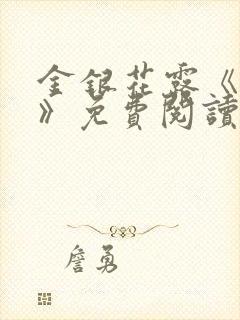 金銀花露《
》免費閱讀
詹勇